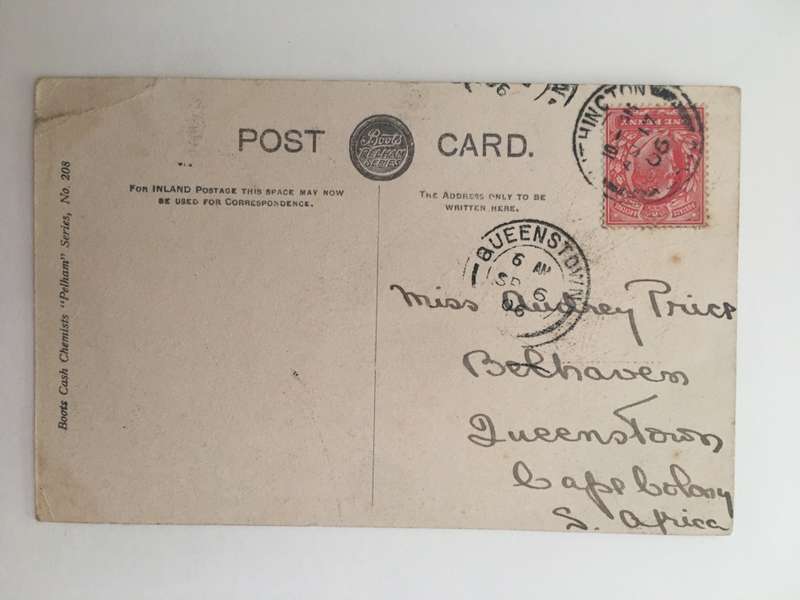 POST CARD.
Boots
PELHAM
SERIES
FOR INLAND POSTAGE THIS SPACE MAY NOW
BE USED FOR CORRESPONDENCE.
THE ADDRESS ONLY TO BE
WRITTEN HERE.
Boots Cash Chemists "Pelham" Series, No. 208
HINGTON
06
ONE PENNY
QUEENSTOWN
6 AM
SP 6
06
Miss Audrey Price
Belhaven
Queenstown
Cape Colony
S. Africa